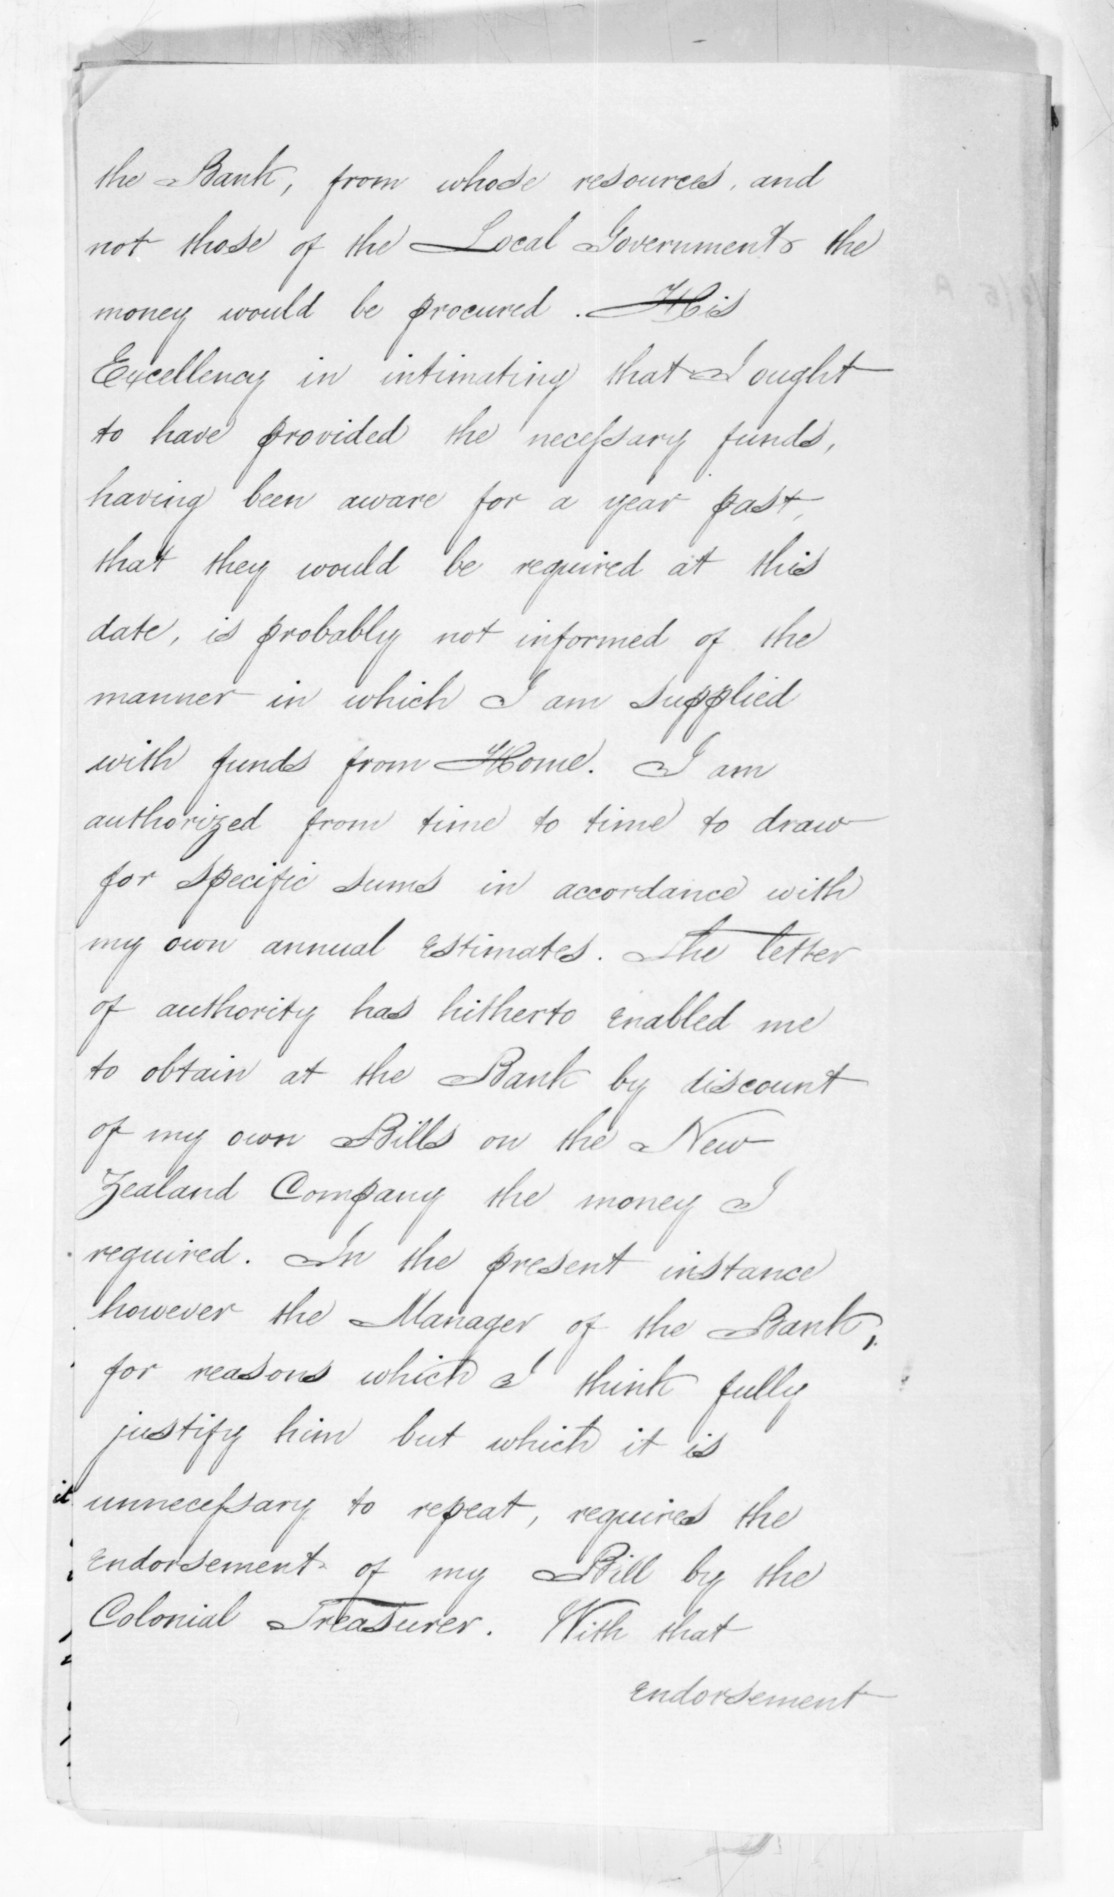 the Bank, from whose resources, and
not those of the Local Government the
money would be procured. His
Excellency in intimating that I ought
to have provided the necessary funds,
having been aware for a year past,
that they would be required at this
date, is probably not informed of the
manner in which I am supplied
with funds from Home. I am
authorized from time to time to draw
for specific sums in accordance with
my own annual estimates. The letter
of authority has hitherto enabled me
to obtain at the Bank by discount
of my own Bills on the New
Zealand Company the money I
required. In the present instance
however the Manager of the Bank,
for reasons which I think fully
justify him but which it is
unnecessary to repeat, requires the
endorsement of my Bill by the
Colonial Treasurer. With that
endorsement